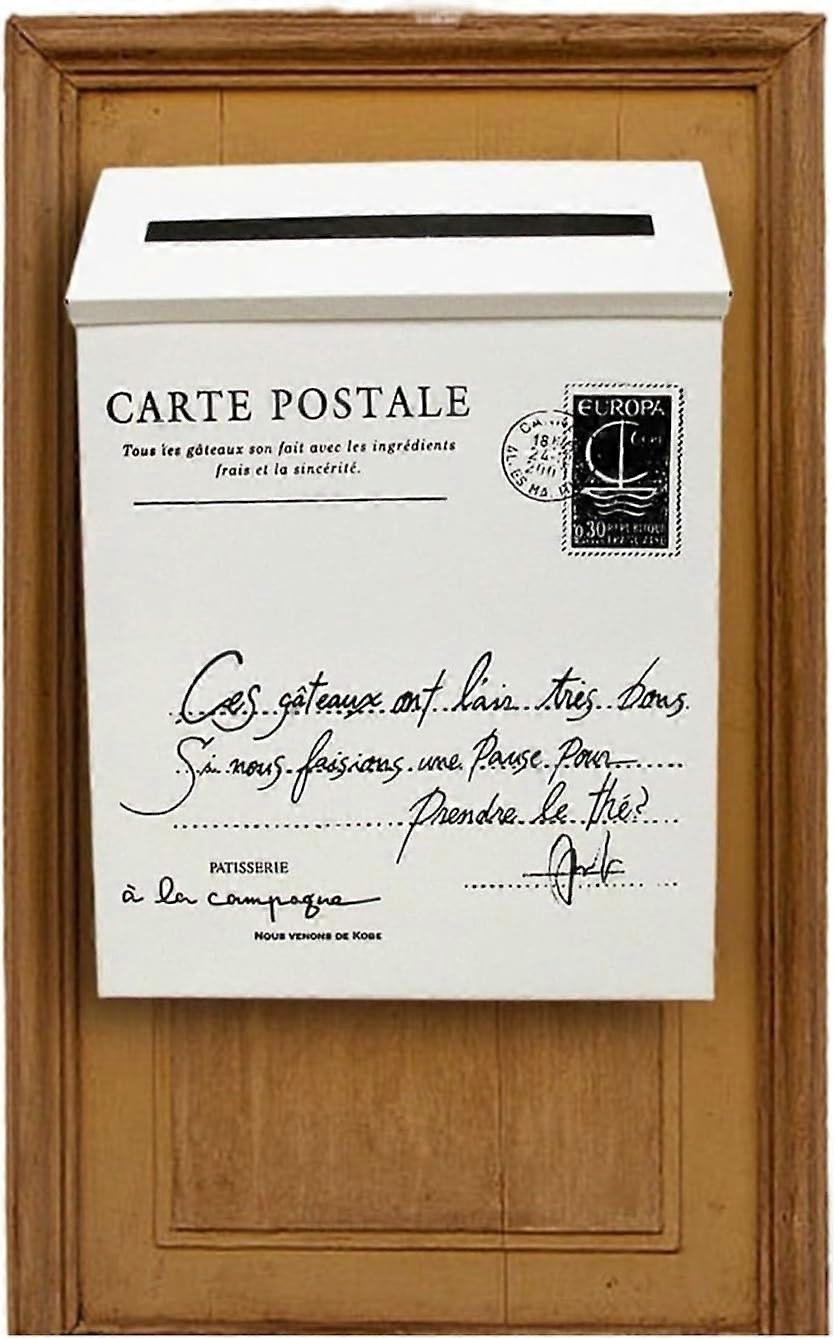 CARTE POSTALE
Tous les gâteaux son fait avec les ingrédients
frais et la sincérité.
EUROPA
18
24
0.30 REPUBLIQUE
FRANÇAISE
Ces gâteaux ont l'air très bons.
Si nous faisions une Pause Pour
Prendre le thé?
PATISSERIE
à la campagne
NOUS VENONS DE KOBE